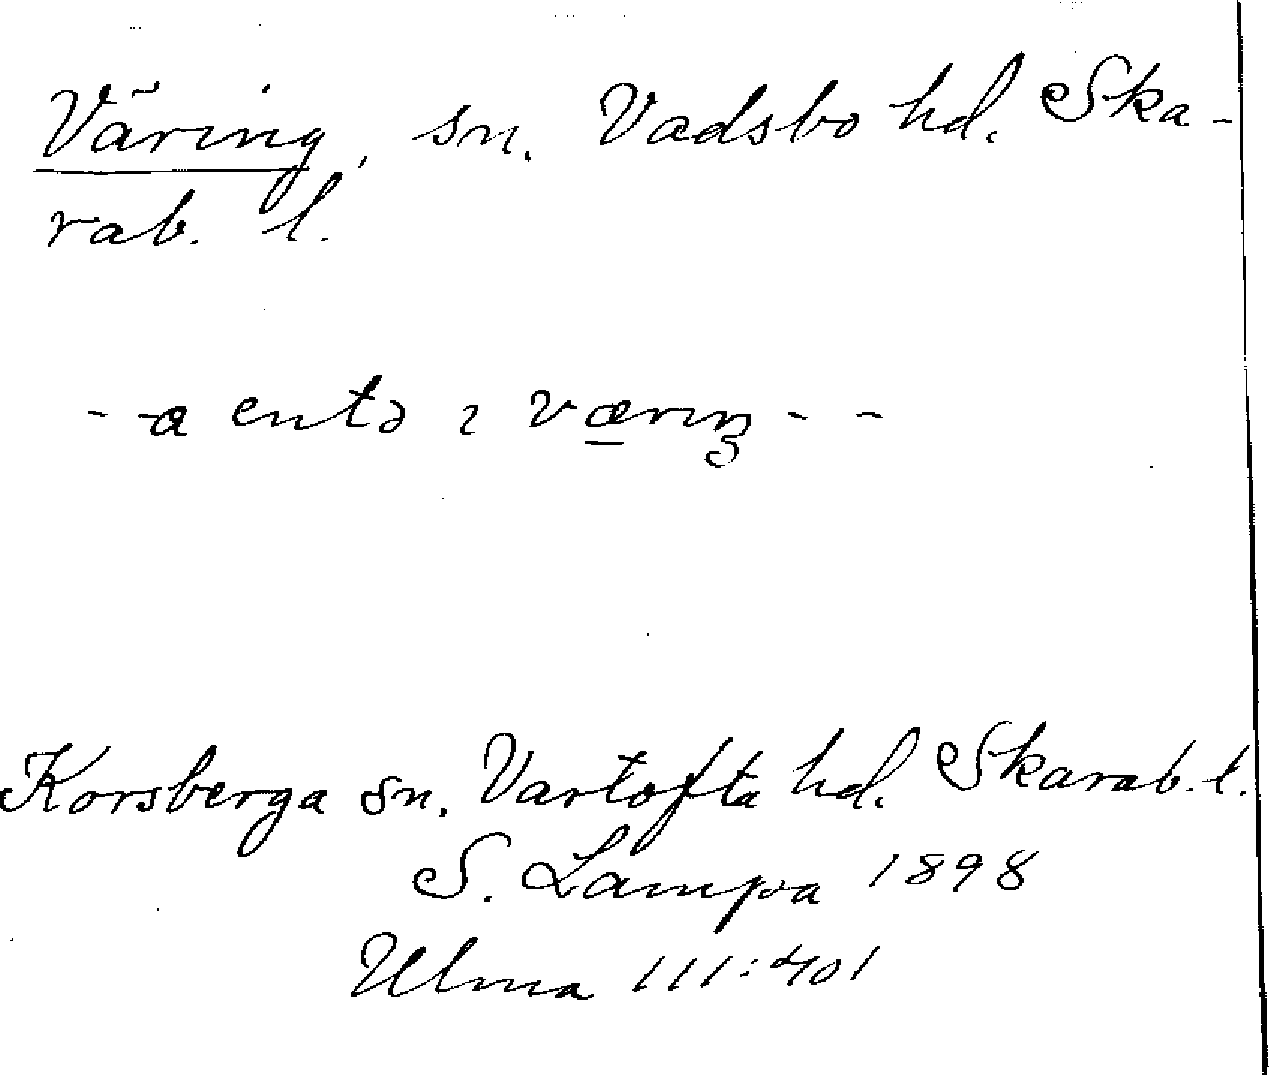 Väring, sn. Vadsbo hd. Ska-
rab. l.
- - a entə ı værıŋ - -
Korsberga sn. Vartofta hd. Skarab. l.
S. Lampa 1898
Ulma 111:401